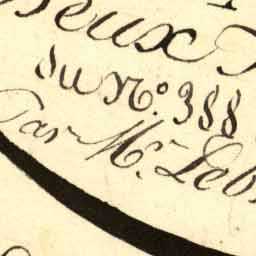 Deux
du N.º 388
Par Mr. Leb